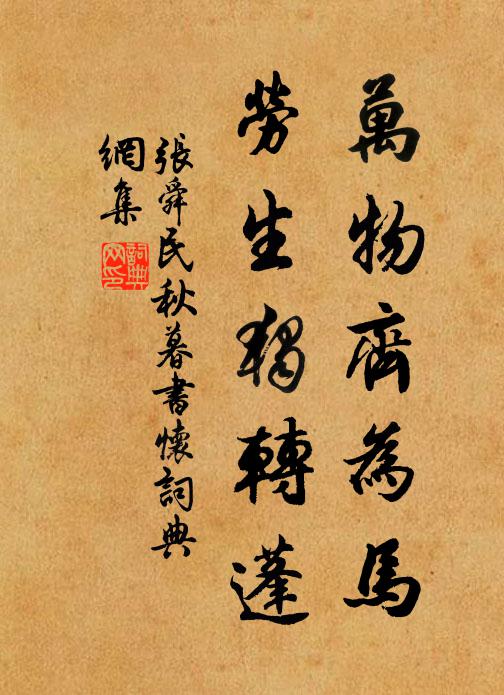 萬物齊為馬
勞生獨轉蓬
張舜民秋暮書懷詞典
網集
詞典
网印